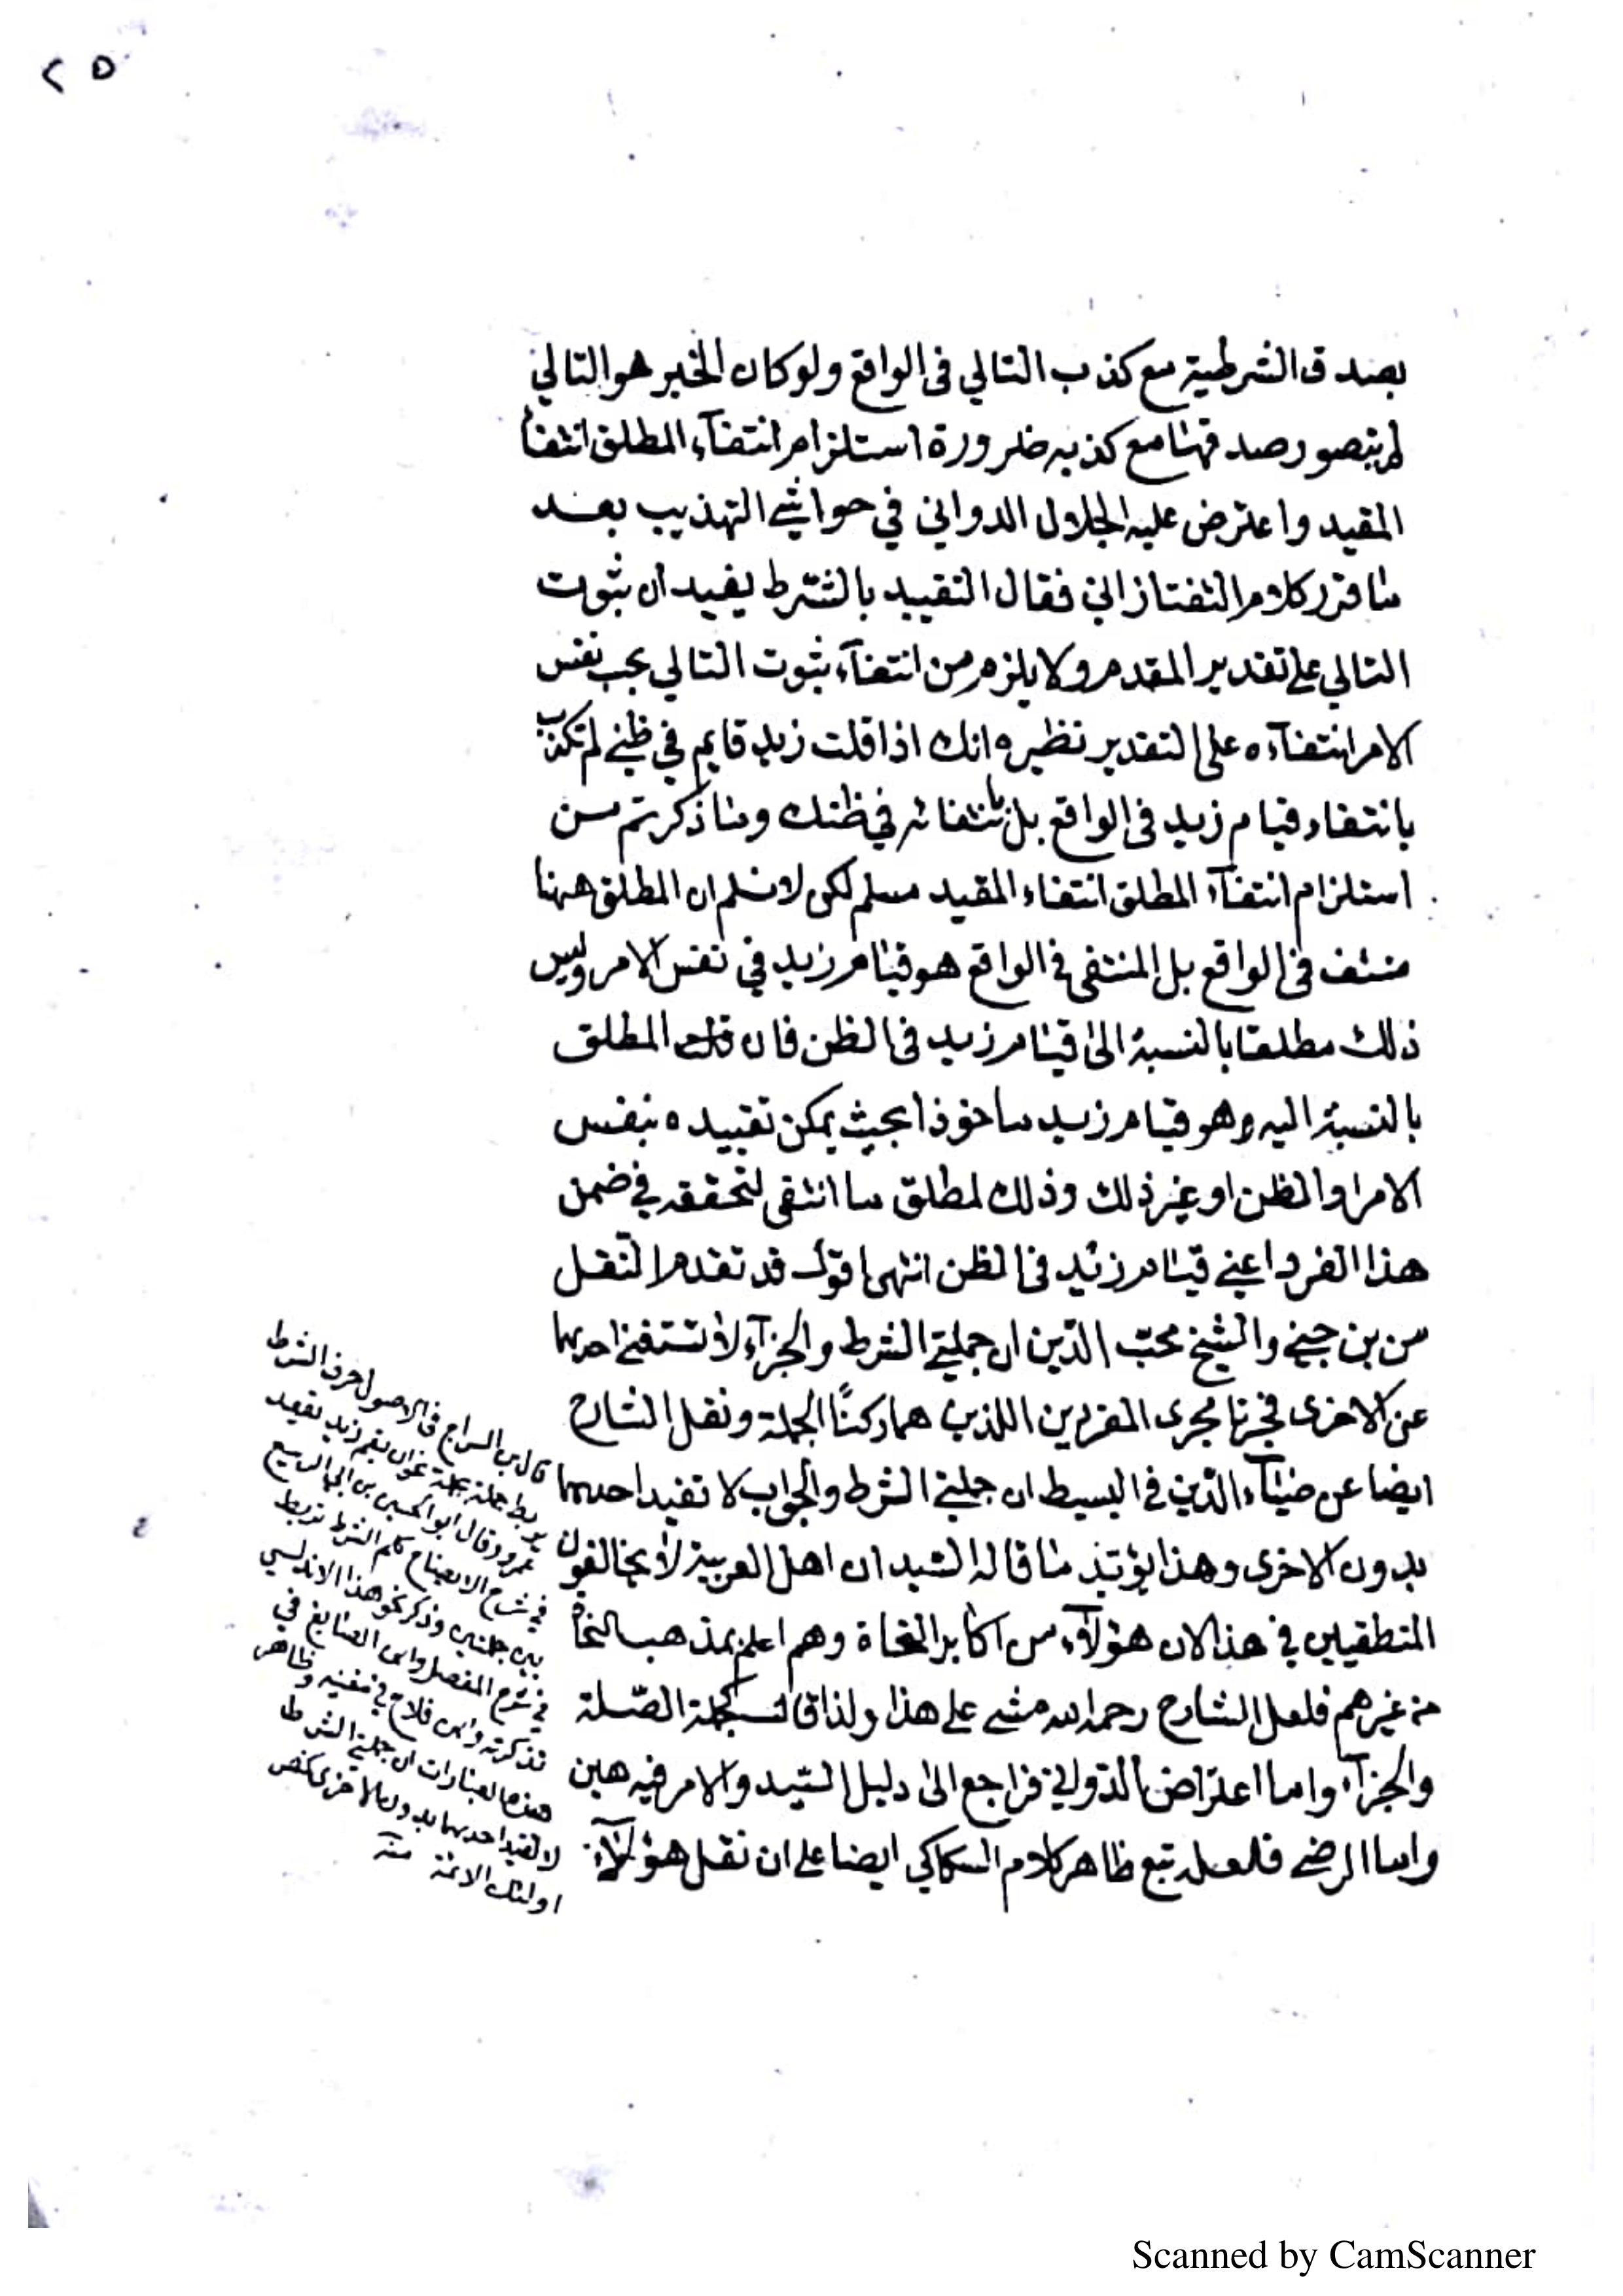 ٢٥
بصدق الشرطية مع كذب التالي فى الواقع ولو كان الخبر هو التالي
لم يتصور صدقها مع كذبه ضرورة استلزام انتفآء المطلق انتفأ
المقيد واعترض عليه الجلال الدواني في حواشي التهذيب بعد
ما قرر كلام التفتازاني فقال التقييد بالشّرط يفيد ان ثبوت
التالي على تقدير المقدم ولا يلزم من انتفآء ثبوت التالي بحب نفس
الامر انتفآءه على التقدير نظيره انك اذا قلت زيد قايم في ظني لم تكذب
بانتفاء قيام زيد فى الواقع بل بانتفائه في ظنك وما ذكرتم من
استلزام انتفآء المطلق انتفاء المقيد مسلم لكن لا نسلم ان المطلق ههنا
منتف فى الواقع بل المنتفى فى الواقع هو قيام زيد في نفس الامر وليس
ذلك مطلقا بالنسبة الى قيام زيد فى الظن فان قلت المطلق
بالنسبة اليه وهو قيام زيد ماخوذا بحيث يمكن تقييده بنفس
الامر او الظن او غير ذلك وذلك لمطلق ما انتفى لتحققه في ضمن
هذا الفرد اعني قيام زيد فى الظن انتهى اقول قد تقدم النّقل
من بن جني والشيخ محبّ الدّين ان جملتي الشرط والجزآء لا تستغني احديهما
عن الاخرى فجرتا مجرى المفردين اللذين هما ركنَا الجملة ونقل الشارح
ايضا عن ضيآء الدّين في البسيط ان جملتي الشرط والجواب لا تفيد احديهما
بدون الاخرى وهذا يؤيد ما قاله السّيد ان اهل العربية لا يخالفون
المنطقيين في هذا لان هؤلآء من اكابر النحاة وهم اعلم بمذهب النحاة
من غيرهم فلعل الشارح رحمه الله مشى على هذا ولذا قال كجملة الصّلة
والجزآء واما اعتراض الدّواني فراجع الى دليل السّيد والامر فيه هين
واما الرضي فلعله تبع ظاهر كلام السكاكي ايضا على ان نقل هؤلآء
قال بن السراج فى الاصول حرف الشرط
يربط جملة بجملة نحو ان يقم زيد يقعد
عمرو وقال ابو الحسين بن ابي الربيع
في شرح الايضاح كلم الشرط تربط
بين جملتين وذكر نحو هذا الاندلسي
في شرح المفصل وابن الصايغ في
تذكرته وابن فلاح في مغنيه وظاهر
هذه العبارات ان جملتي الشرط
لا تفيد احديهما بدون الاخرى كنص
اولئك الائمة منه
Scanned by CamScanner